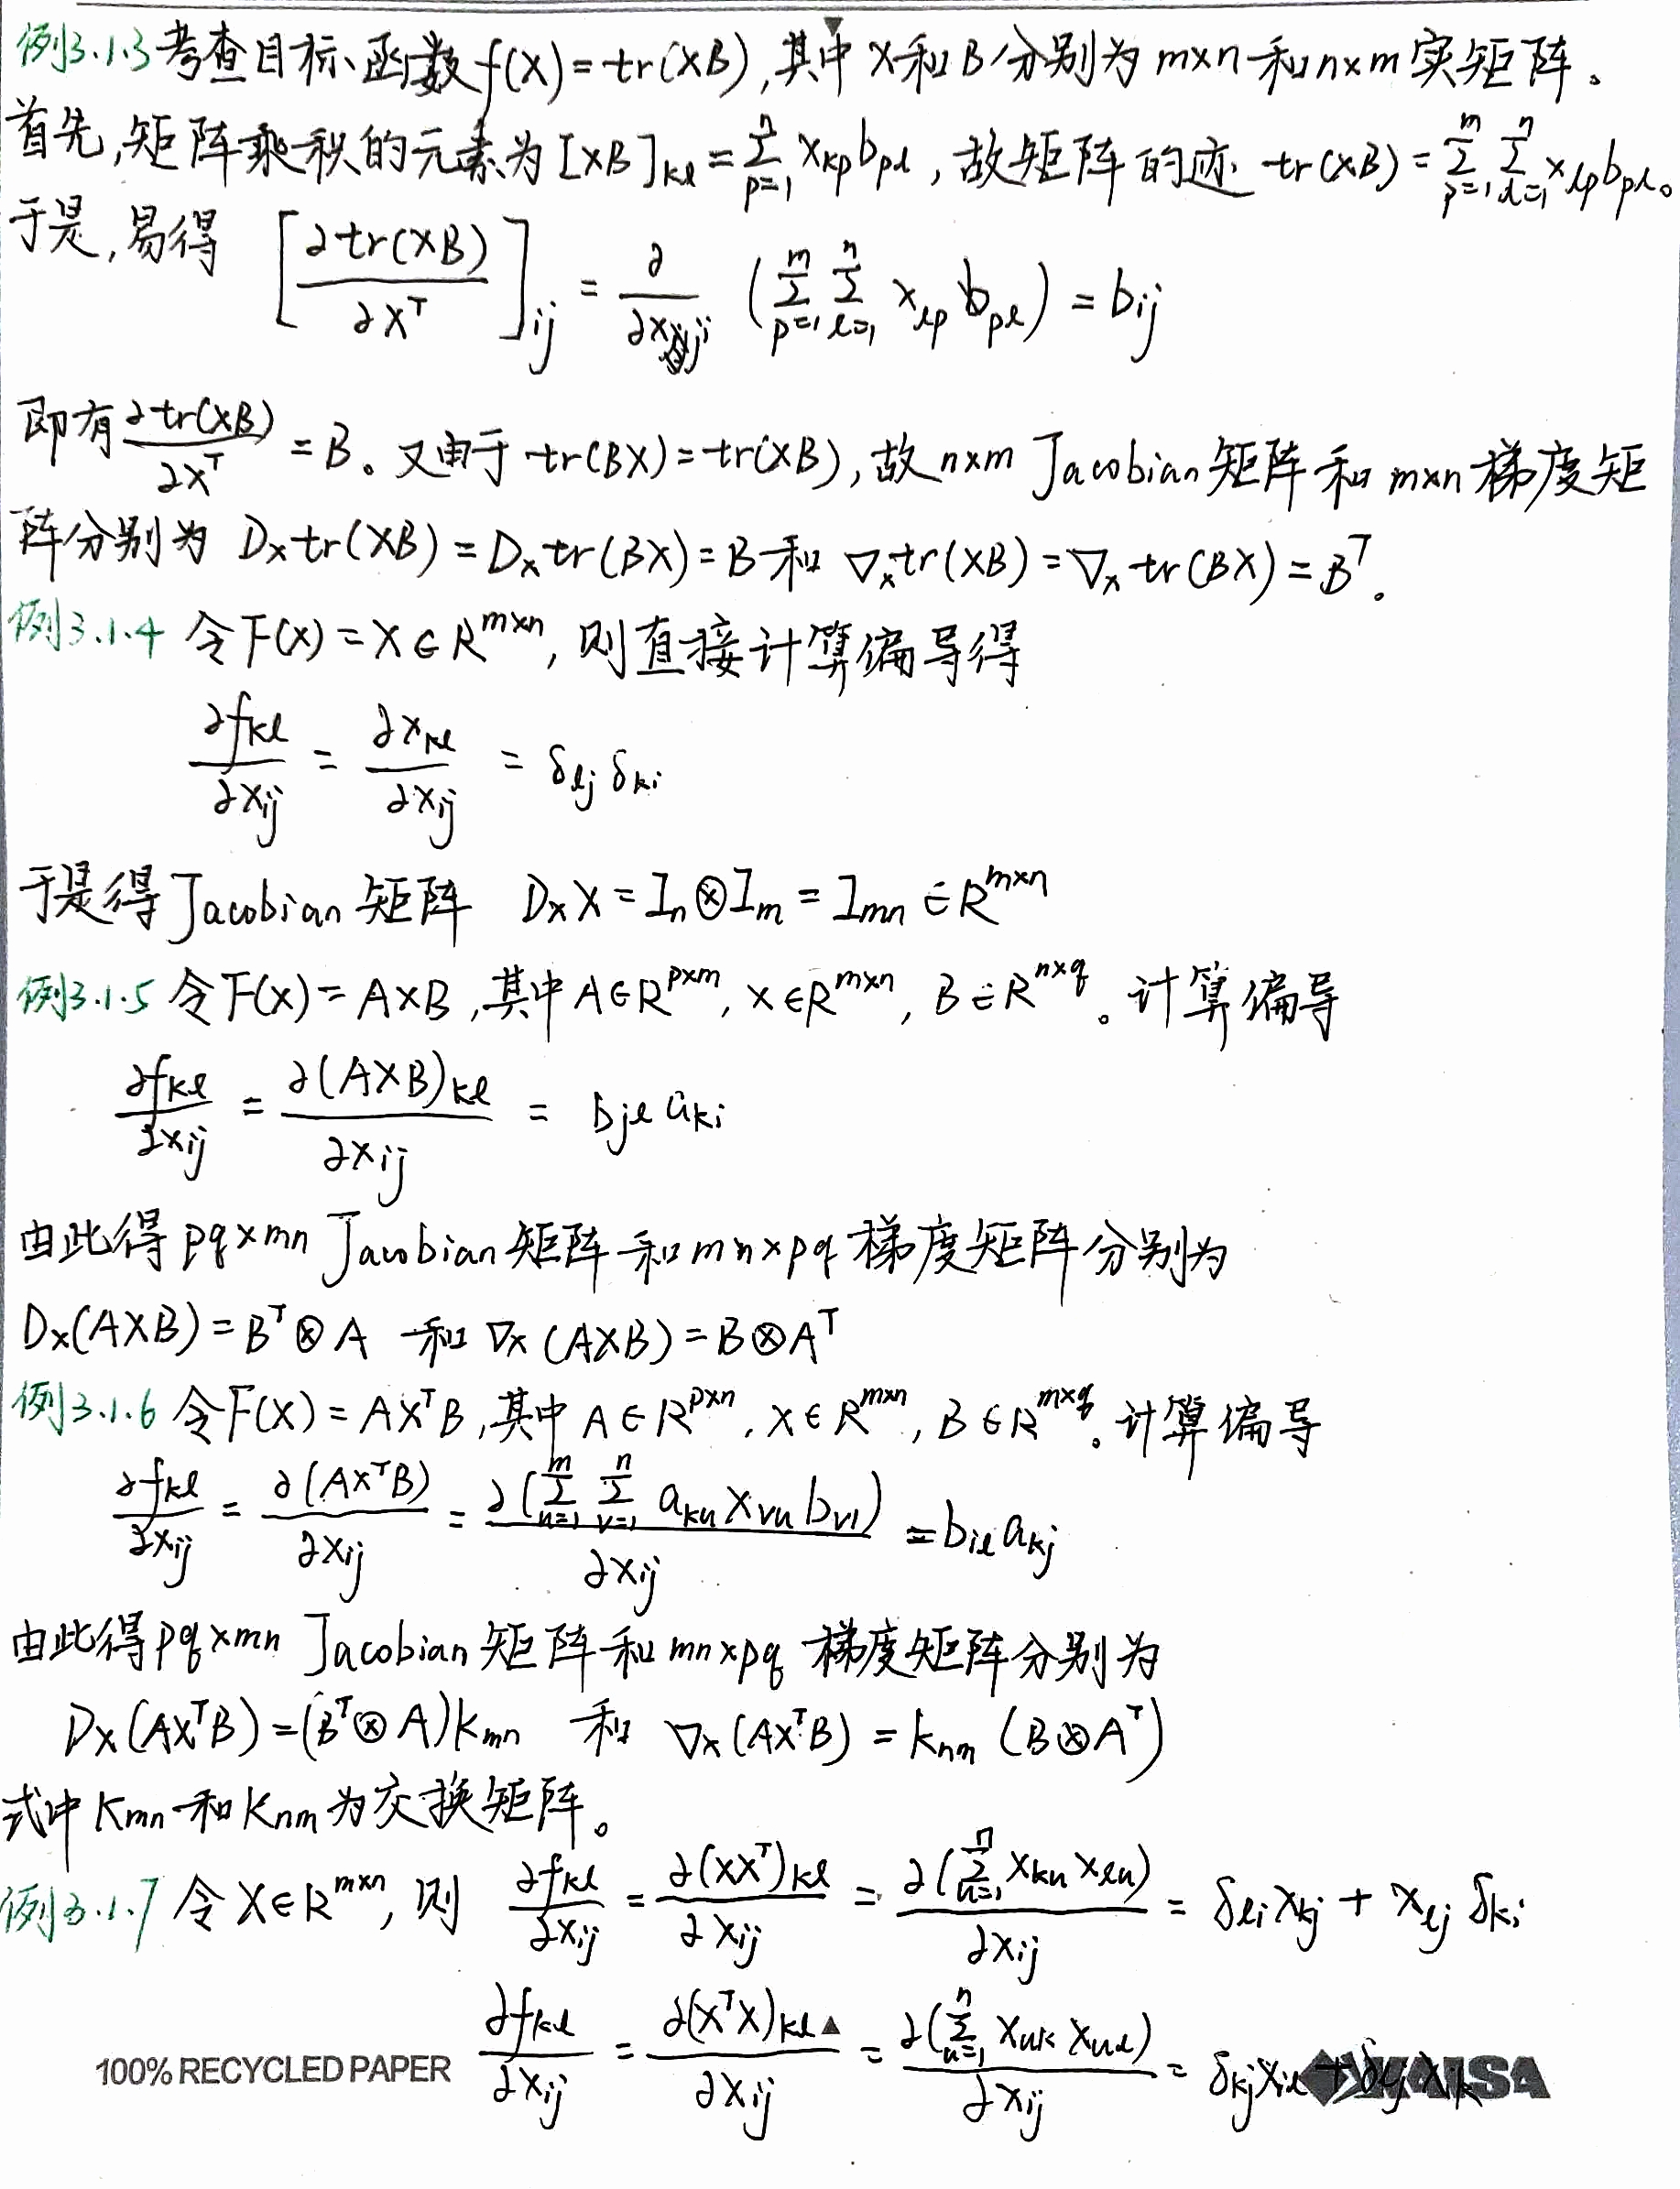 例3.1.3 考查目标函数f(X)=tr(XB),其中X和B分别为m×n和n×m实矩阵。
首先,矩阵乘积的元素为[XB]ₖₗ=∑ₚ₌₁ⁿ xₖₚbₚₗ,故矩阵的迹 tr(XB)=∑ₚ₌₁ᵐ∑ₗ₌₁ⁿ xₗₚbₚₗ。
于是,易得 [∂tr(XB)/∂Xᵀ]ᵢⱼ = ∂/∂xⱼᵢ (∑ₚ₌₁ᵐ∑ₗ₌₁ⁿ xₗₚbₚₗ) = bᵢⱼ
即有 ∂tr(XB)/∂Xᵀ = B。又由于tr(BX)=tr(XB),故n×m Jacobian矩阵和m×n梯度矩
阵分别为 Dₓtr(XB)=Dₓtr(BX)=B和 ∇ₓtr(XB)=∇ₓtr(BX)=Bᵀ。
例3.1.4 令F(X)=X∈R^{m×n},则直接计算偏导得
∂fₖₗ/∂xᵢⱼ = ∂xₖₗ/∂xᵢⱼ = δₗⱼδₖᵢ
于是得Jacobian矩阵 DₓX=Iₙ⊗Iₘ=Iₘₙ∈R^{m×n}
例3.1.5 令F(X)=AXB,其中A∈R^{p×m}, X∈R^{m×n}, B∈R^{n×q}。计算偏导
∂fₖₗ/∂xᵢⱼ = ∂(AXB)ₖₗ/∂xᵢⱼ = bⱼₗaₖᵢ
由此得pq×mn Jacobian矩阵和mn×pq梯度矩阵分别为
Dₓ(AXB)=Bᵀ⊗A 和 ∇ₓ(AXB)=B⊗Aᵀ
例3.1.6 令F(X)=AXᵀB,其中A∈R^{p×n}, X∈R^{m×n}, B∈R^{m×q}。计算偏导
∂fₖₗ/∂xᵢⱼ = ∂(AXᵀB)/∂xᵢⱼ = ∂(∑ᵤ₌₁ᵐ∑ᵥ₌₁ⁿ aₖᵤxᵥᵤbᵥₗ)/∂xᵢⱼ = bᵢₗaₖⱼ
由此得pq×mn Jacobian矩阵和mn×pq 梯度矩阵分别为
Dₓ(AXᵀB)=(Bᵀ⊗A)Kₘₙ 和 ∇ₓ(AXᵀB)=Kₙₘ(B⊗Aᵀ)
式中Kₘₙ和Kₙₘ为交换矩阵。
例3.1.7 令X∈R^{m×n},则 ∂fₖₗ/∂xᵢⱼ = ∂(XXᵀ)ₖₗ/∂xᵢⱼ = ∂(∑ᵤ₌₁ⁿ xₖᵤxₗᵤ)/∂xᵢⱼ = δₗᵢxₖⱼ + xₗⱼδₖᵢ
∂fₖₗ/∂xᵢⱼ = ∂(XᵀX)ₖₗ/∂xᵢⱼ = ∂(∑ᵤ₌₁ⁿ xᵤₖxᵤₗ)/∂xᵢⱼ = δₖⱼxᵢₗ + δₗⱼxᵢₖ
100% RECYCLED PAPER KAISA